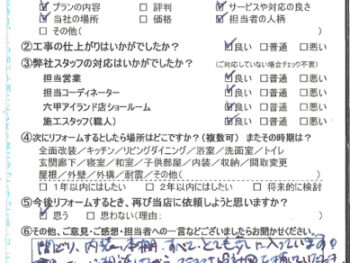 ☑プランの内容 □評判 ☑サービスや対応の良さ
☑当社の場所 □価格 ☑担当者の人柄
□その他(
②工事の仕上がりはいかがでしたか? ☑良い □普通 □悪い
③弊社スタッフの対応はいかがでしたか? (ご対応していない場合チェック不要)
担当営業 ☑良い □普通 □悪い
担当コーディネーター ☑良い □普通 □悪い
六甲アイランド店ショールーム ☑良い □普通 □悪い
施工スタッフ(職人) ☑良い □普通 □悪い
④次にリフォームするとしたら場所はどこですか?(複数可) またその時期は?
全面改装/キッチン/リビングダイニング/浴室/洗面室/トイレ
玄関廊下/寝室/和室/子供部屋/内装/収納/間取変更
屋根/外壁/外構/耐震/その他(
□1年以内にはしたい □2年以内にはしたい □将来的に検討
⑤今後リフォームするとき、再び当店に依頼しようと思いますか?
☑思う □思わない(理由:
⑥その他、ご意見・ご感想・担当者への一言などございましたらお聞かせください。
間どり、内装、本棚、すべて、とても気に入っています